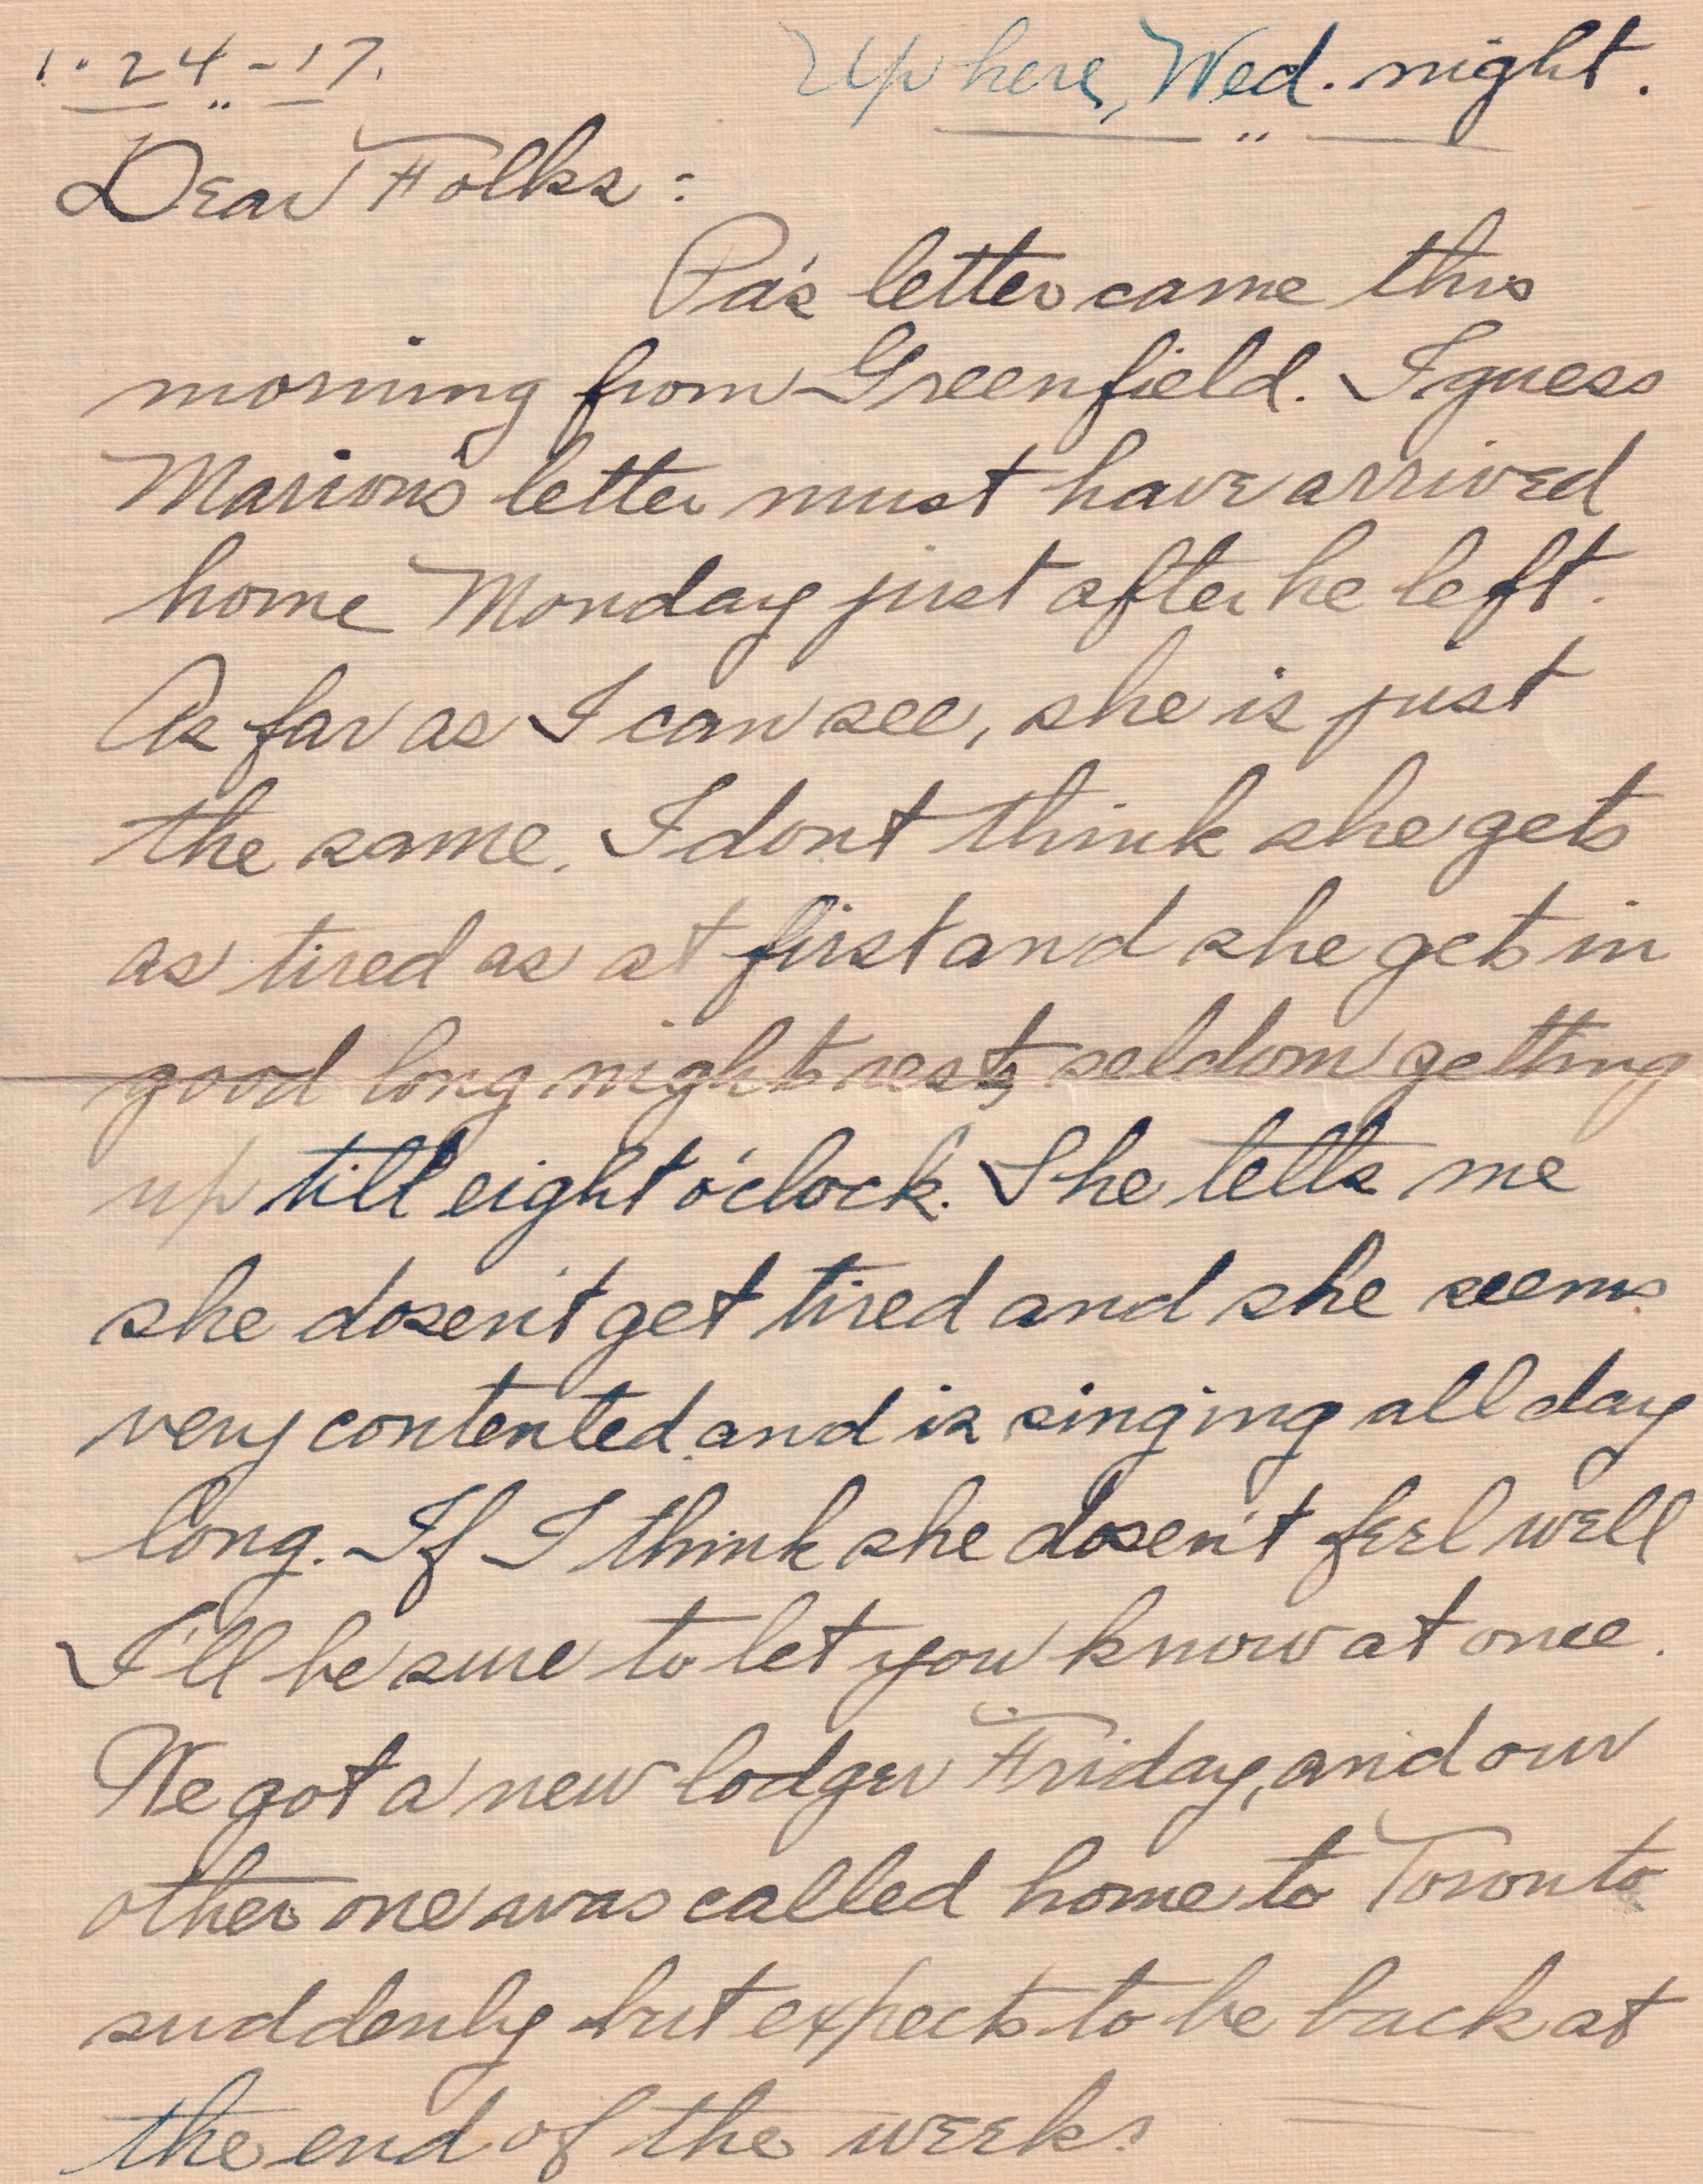 1-24-17.
Up here, Wed. night.
Dear Folks:
Pa's letter came this
morning from Greenfield. I guess
Marion's letter must have arrived
home Monday just after he left.
As far as I can see, she is just
the same. I dont think she gets
as tired as at first and she gets in
good long nights rests, seldom getting
up till eight o'clock. She tells me
she dosen't get tired and she seems
very contented and is singing all day
long. If I think she dosen't feel well
I'll be sure to let you know at once.
We got a new lodger Friday, and our
other one was called home to Toronto
suddenly but expects to be back at
the end of the week.